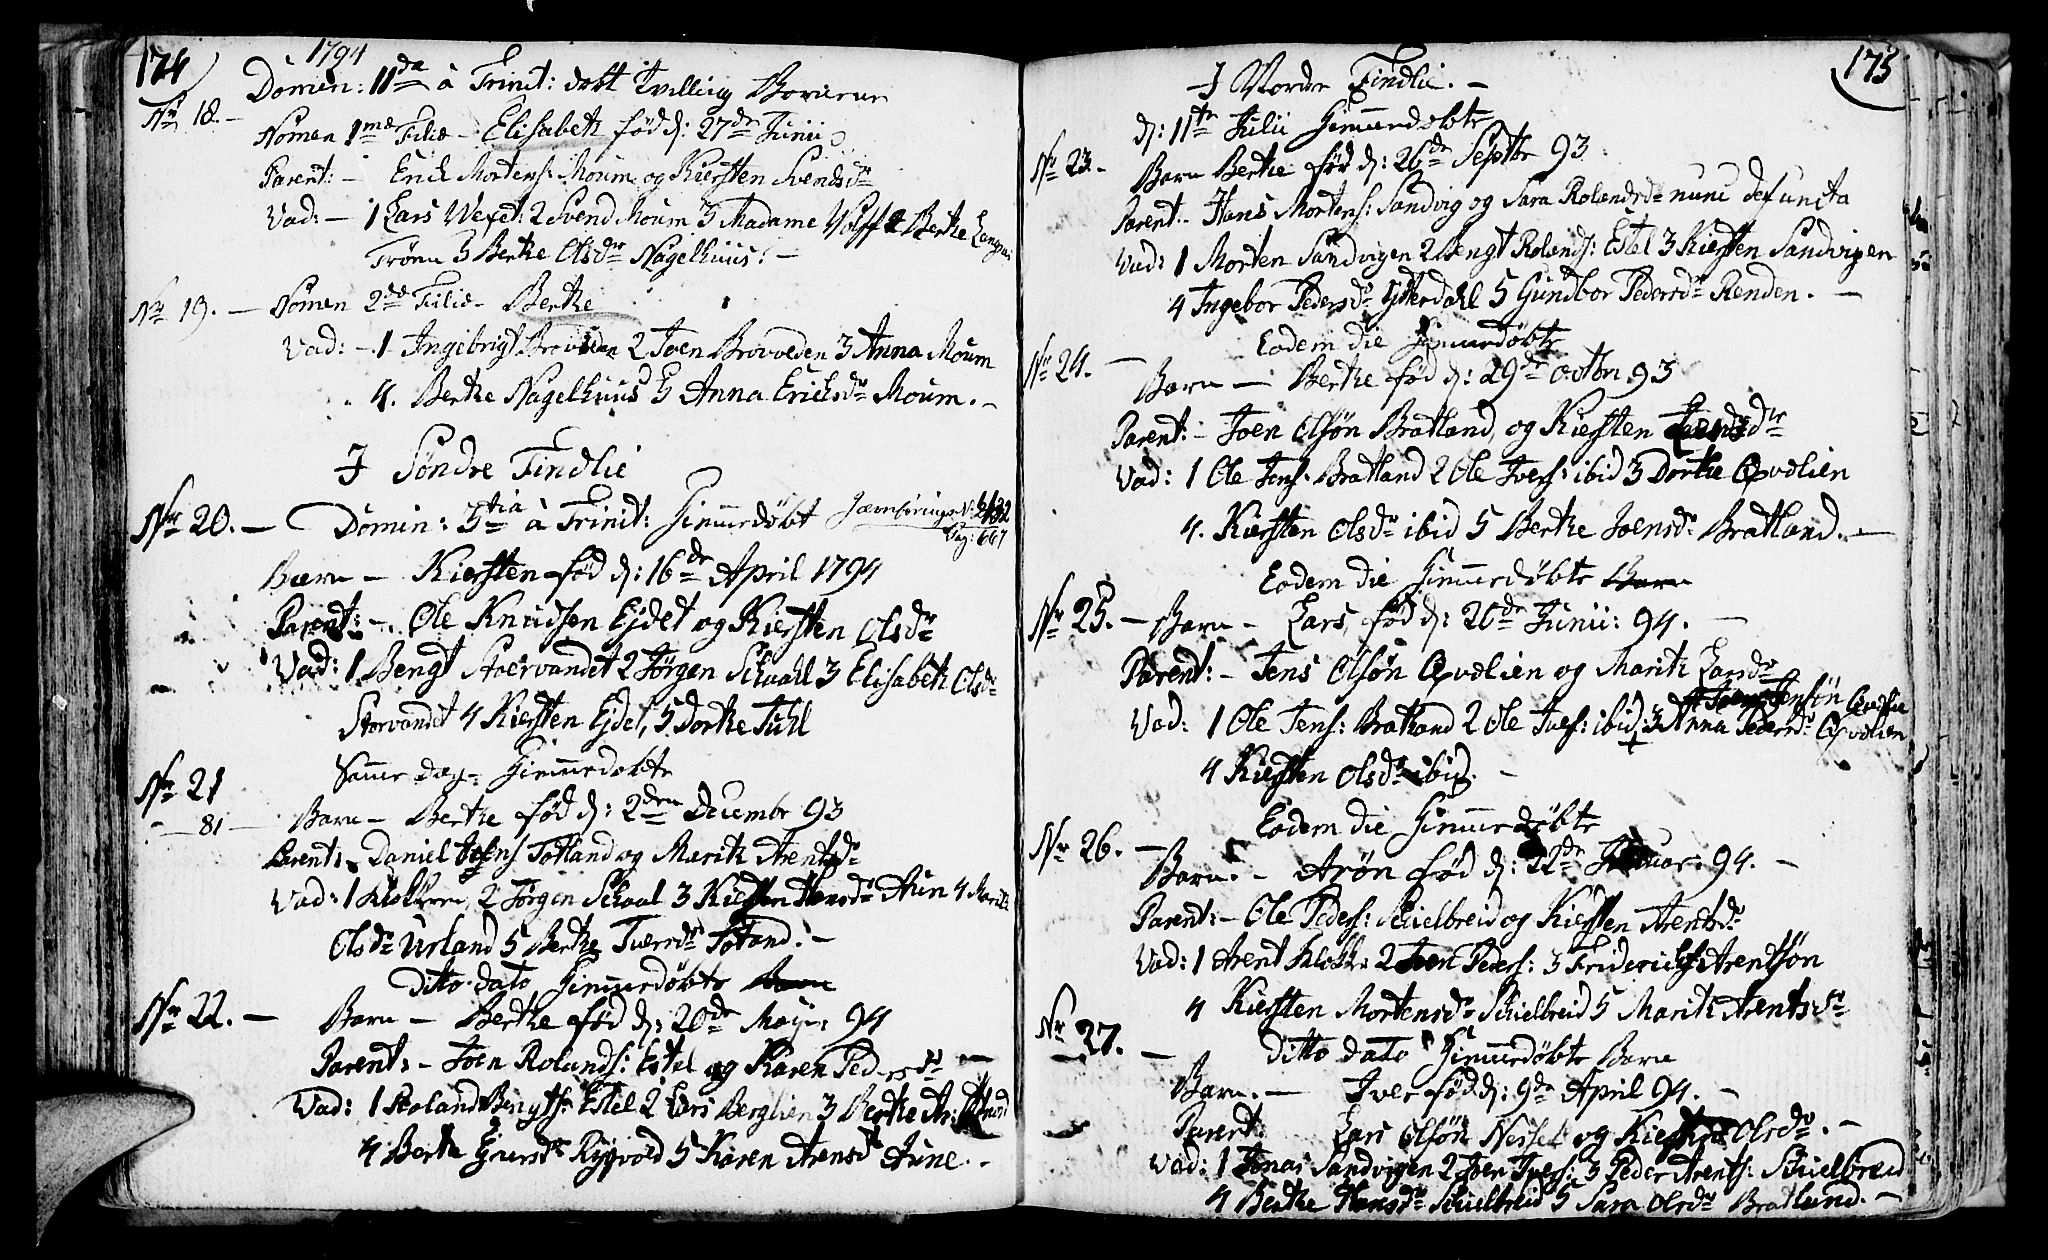 174
1794
Domin: 11da à Trinit: døbt Tvilling Børnene
Nr 18. -
Nomen 1mæ Filiæ - Elisabeth fød d: 27de Junii
Parent: - Erich Mortens: Moum og Kiersten Svendsdr
Vad: - 1 Lars Wexet: 2 Svend Moum 3 Madame Wolff 4 Berthe
Trønn 5 Berthe Olsdr Nagelhuus: -
Nr 19. - Nomen 2dæ Filiæ - Berthe
Vad: - 1 Ingebrigt Brovolden 2 Joen Brovolden 3 Anna Moum
4. Berthe Nagelhuus 5 Anna Erichsdr Moum. -
I Søndre Findlie
Nr 20. - Domin: 5tia à Trinit: Hiemmedøbt
Pag: 667
Barn - Kiersten fød d: 16de April 1794
Parent: - Ole Knudsen Ejdet og Kiersten Olsdr
Vad: 1 Bengt Storvandet 2 Jørgen Schaahl 3 Elisabeth Olsdr
Storvandet 4 Kiersten Ejdet, 5 Dorthe Tuhl
Samme Dag - Hiemmedøbte
Nr 21
81 - Barn - Berthe fød d: 2den Decembr 93
Parent: - Daniel Totland og Marith Arentsdr
Vad: 1 Klokkeren, 2 Jørgen Schaal 3 Kiersten Hansdr Aun 4 Marith
Olsdr Urland 5 Berthe Iversdr Totland. -
Ditto dato Hiemmedøbte Barn
Nr 22. - Barn - Berthe fød d: 20de Maji: 94
Parent: - Joen Rolands: Estel og Karen Pedersdr -
Vad: 1 Roland Bengts: Estel 2 Lars Berglien 3 Berthe
4 Berthe Rygvold 5 Karen Arensdr Aune. -
175
I Nordre Findlie. -
d: 11te Julii Hiemmedøbte
Nr 23. - Barn Berthe fød d: 26de Septbr 93
Parent: - Hans Mortens: Sandvig og Sara Rolandsdr nunc defuncta
Vad: 1 Morten Sandvigen 2 Bengt Rolands: Estel 3 Kiersten Sandvigen
4 Ingebor Pedersdr Ytterdahl 5 Gundbor Pedersdr Renden. -
Eodem die Hiemmedøbte
Nr 24. - Barn - Berthe fød d: 29de Octbr 93
Parent: - Joen Olsøn Bratland, og Kiersten
Vad: 1 Ole Jens: Bratland 2 Ole Ivers: ibid 3 Dorthe Qvolien
4. Kiersten Olsdr ibid 5 Berthe Joensdr Bratland. -
Eodem die Hiemmedøbte Barn
Nr 25. - Barn - Lars, fød d: 20de Junii: 94. -
Parent: - Jens Olsøn Qvolien og Marith Larsdr
Vad: 1 Ole Jens: Bratland 2 Ole Ivers: ibid: 3 Anna Pedersdr Qvolien
4 Kiersten Olsdr ibid. -
Eodem die Hiemmedøbte
Nr 26. - Barn. - Arøn fød d: 22de Januar: 94. -
Parent: - Ole Peders: Schielbreid og Kiersten Arentsdr
Vad: 1 Arent Klokk: 2 Joen Peders: 3 Friderich Arentsøn
4 Kiersten Mortensdr Schielbreid 5 Marith Arentsdr
Nr 27. - Ditto dato Hiemmedøbte Barn
Barn. - Iver fød d: 9de April 94. -
Parent: Lars Olsøn Nesset og Kiersten Olsdr. -
Vad: 1 Jonas Sandvigen 2 Joen Ivers: 3 Peder Arents: Schielbreid
4 Berthe Hansdr Schielbreid 5 Sara Olsdr Bratland. -